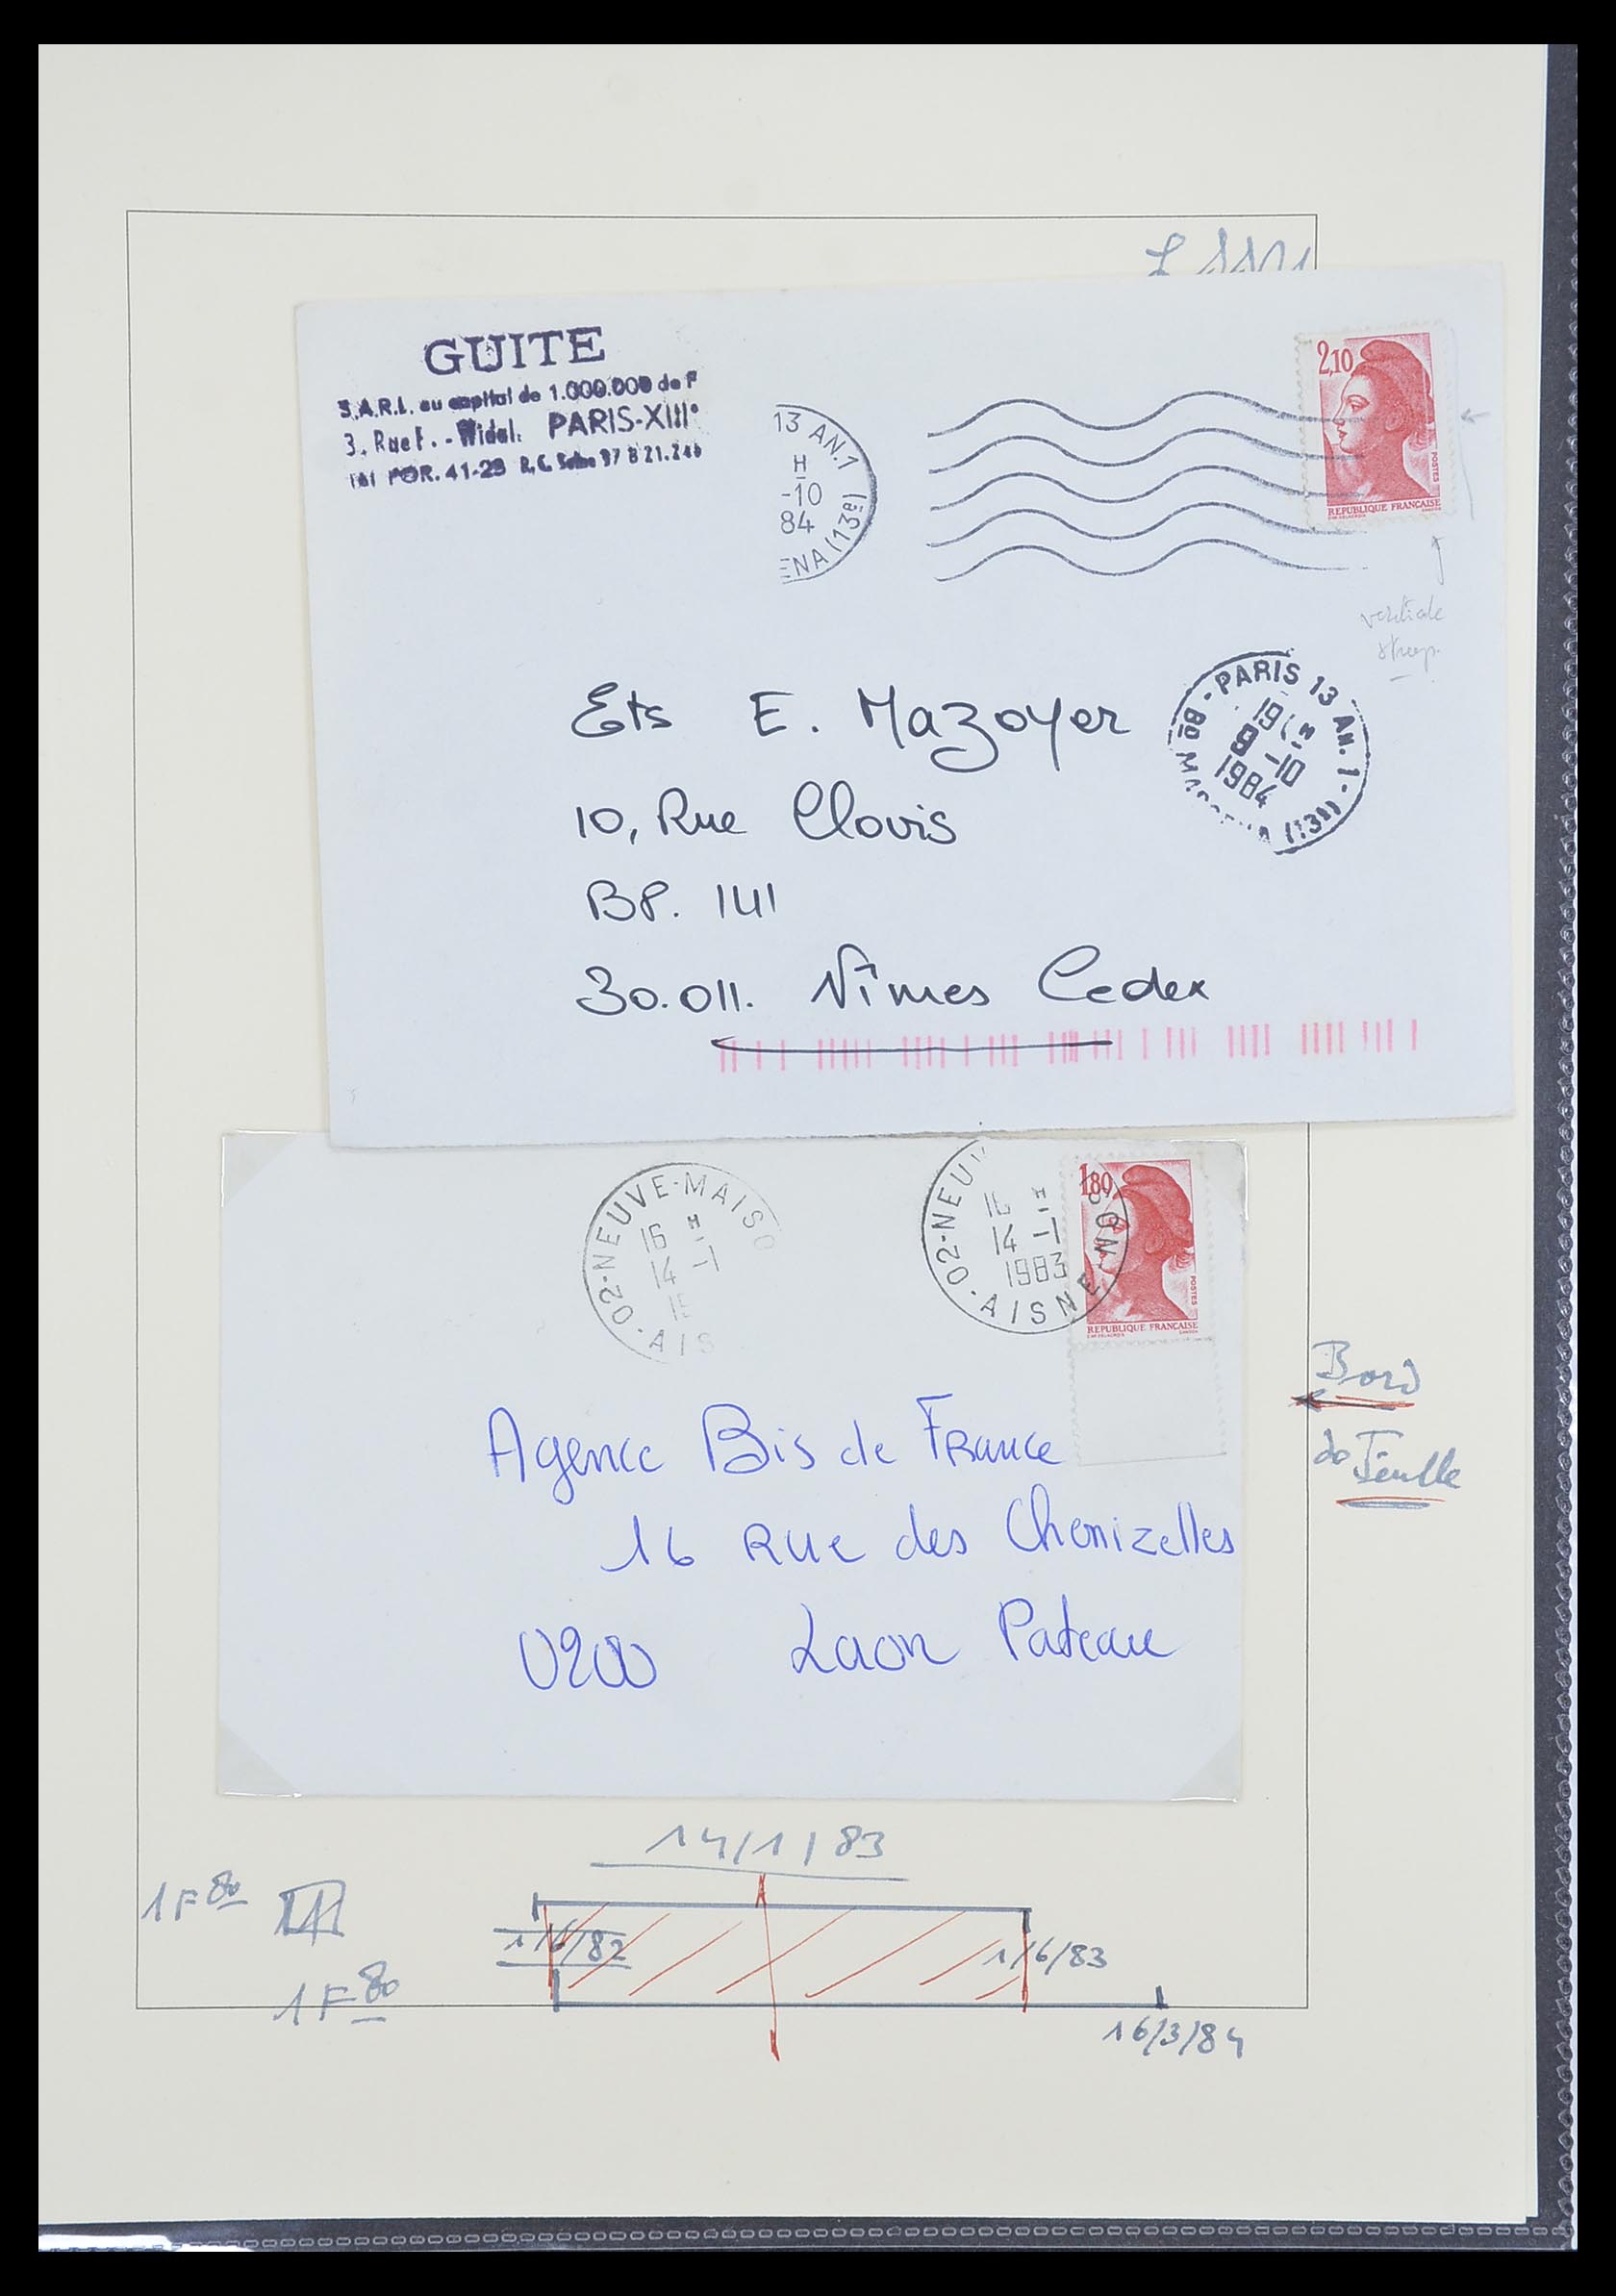 GUITE
S.A.R.L. au capital de 1.000.000 de F
3, Rue F. - Widal. PARIS-XIII°
POR. 41-25 R.C. Seine 57 B 21.246
13 AN.1
H
-10
84
ENA (13E)
2,10
POSTES
REPUBLIQUE FRANÇAISE
verticale
streep
PARIS 13 AN. 1 - (13E)
19 H
9 -10
1984
BD
Ets E. Mazoyer
10, Rue Clovis
BP. 141
30.011. Nîmes Cedex
02-NEUVE-MAISO
16 H
14 -1
AIS
02-NEUV
16 H
14 -1
1983
AISNE
1,80
POSTES
REPUBLIQUE FRANÇAISE
Bord
de Feuille
Agence Bis de France
16 Rue des Chenizelles
0200 Laon Plateau
14/1/83
1F80
1/6/82
1/6/83
1F80
16/3/84